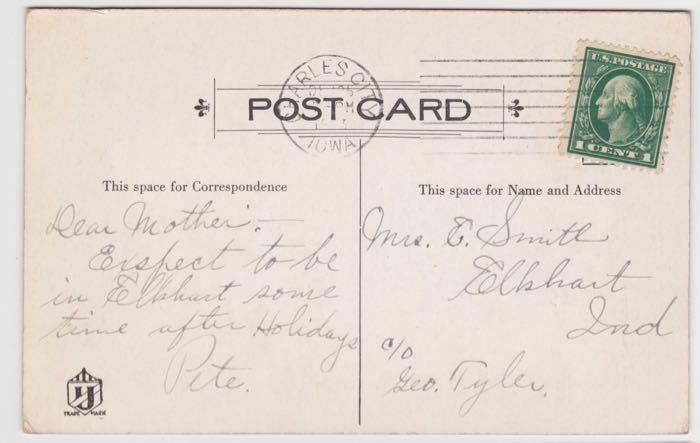 CHARLES CITY
IOWA
POST CARD
U.S. POSTAGE
1 CENT 1
This space for Correspondence
Dear Mother:—
Exspect to be
in Elkhart some
time after Holidays
Pete.
This space for Name and Address
Mrs. E. Smith
Elkhart
Ind
c/o
Geo. Tyler.
TRADE MARK